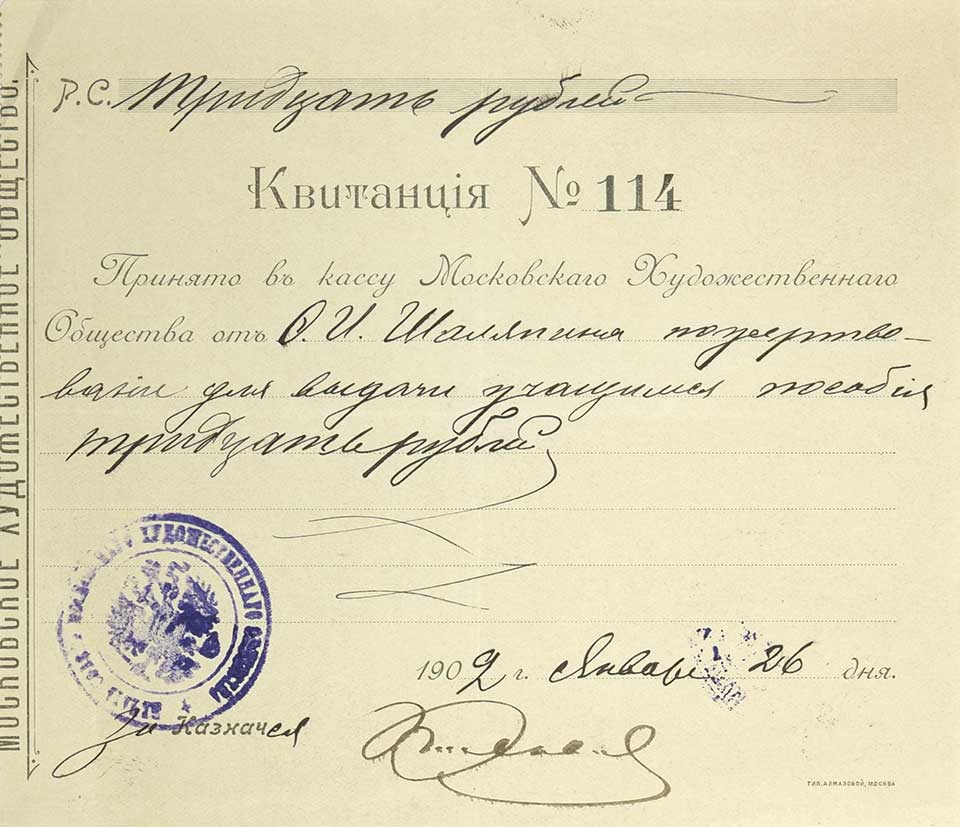 Р.С. Тридцать рублей
Квитанція № 114
Принято въ кассу Московскаго Художественнаго
Общества отъ Ѳ. И. Шаляпина пожертво-
ваніе для выдачи учащимся пособія
тридцать рублей
1902 г. Январь 26 дня.
За Казначея
ТИП. АЛМАЗОВОЙ, МОСКВА
МОСКОВСКОЕ ХУДОЖЕСТВЕННОЕ ОБЩЕСТВО.
ХУДОЖЕСТВЕННАГО